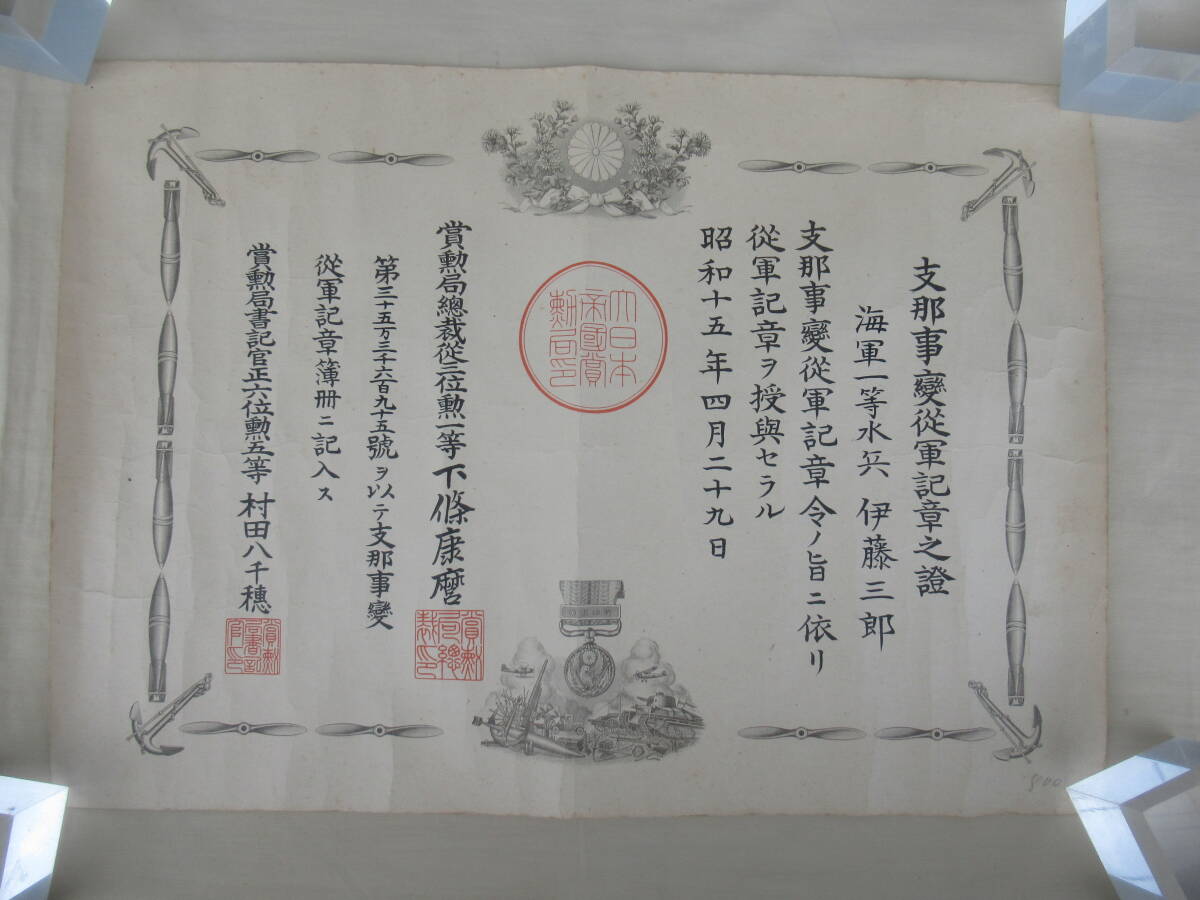 支那事變從軍記章之證
海軍一等水兵 伊藤三郎
支那事變從軍記章令ノ旨ニ依リ
從軍記章ヲ授與セラル
昭和十五年四月二十九日
大日本
帝國賞
勳局印
賞勲局總裁從三位勲一等下條康麿
賞勳
局總
裁印
第三十五万三千六百九十五號ヲ以テ支那事變
從軍記章簿冊ニ記入ス
賞勲局書記官正六位勲五等村田八千穗
賞勳
局書記
官印